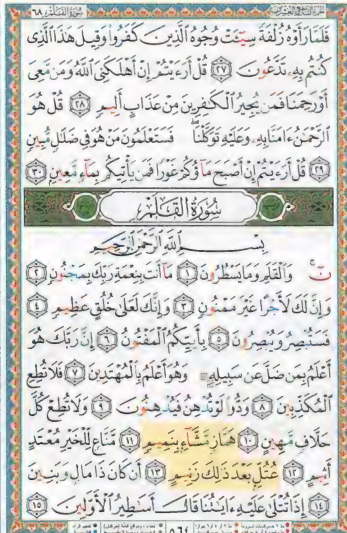 سورة القلم ٦٨
فَلَمَّا رَأَوْهُ زُلْفَةً سِيٓـَٔتْ وُجُوهُ ٱلَّذِينَ كَفَرُوا۟ وَقِيلَ هَٰذَا ٱلَّذِى
كُنتُم بِهِۦ تَدَّعُونَ ٢٧ قُلْ أَرَءَيْتُمْ إِنْ أَهْلَكَنِىَ ٱللَّهُ وَمَن مَّعِىَ
أَوْ رَحِمَنَا فَمَن يُجِيرُ ٱلْكَٰفِرِينَ مِنْ عَذَابٍ أَلِيمٍ ٢٨ قُلْ هُوَ
ٱلرَّحْمَٰنُ ءَامَنَّا بِهِۦ وَعَلَيْهِ تَوَكَّلْنَا ۖ فَسَتَعْلَمُونَ مَنْ هُوَ فِى ضَلَٰلٍ مُّبِينٍ
٢٩ قُلْ أَرَءَيْتُمْ إِنْ أَصْبَحَ مَآؤُكُمْ غَوْرًا فَمَن يَأْتِيكُم بِمَآءٍ مَّعِينٍۭ ٣٠
سُورَةُ القَلَمِ
بِسْمِ ٱللَّهِ ٱلرَّحْمَٰنِ ٱلرَّحِيمِ
نٓ ۚ وَٱلْقَلَمِ وَمَا يَسْطُرُونَ ١ مَآ أَنتَ بِنِعْمَةِ رَبِّكَ بِمَجْنُونٍ ٢
وَإِنَّ لَكَ لَأَجْرًا غَيْرَ مَمْنُونٍ ٣ وَإِنَّكَ لَعَلَىٰ خُلُقٍ عَظِيمٍ ٤
فَسَتُبْصِرُ وَيُبْصِرُونَ ٥ بِأَييِّكُمُ ٱلْمَفْتُونُ ٦ إِنَّ رَبَّكَ هُوَ
أَعْلَمُ بِمَن ضَلَّ عَن سَبِيلِهِۦ وَهُوَ أَعْلَمُ بِٱلْمُهْتَدِينَ ٧ فَلَا تُطِعِ
ٱلْمُكَذِّبِينَ ٨ وَدُّوا۟ لَوْ تُدْهِنُ فَيُدْهِنُونَ ٩ وَلَا تُطِعْ كُلَّ
حَلَّافٍ مَّهِينٍ ١٠ هَمَّازٍ مَّشَّآءٍۭ بِنَمِيمٍ ١١ مَّنَّاعٍ لِّلْخَيْرِ مُعْتَدٍ
أَثِيمٍ ١٢ عُتُلٍّۭ بَعْدَ ذَٰلِكَ زَنِيمٍ ١٣ أَن كَانَ ذَا مَالٍ وَبَنِينَ
١٤ إِذَا تُتْلَىٰ عَلَيْهِ ءَايَٰتُنَا قَالَ أَسَٰطِيرُ ٱلْأَوَّلِينَ ١٥
٥٦٤